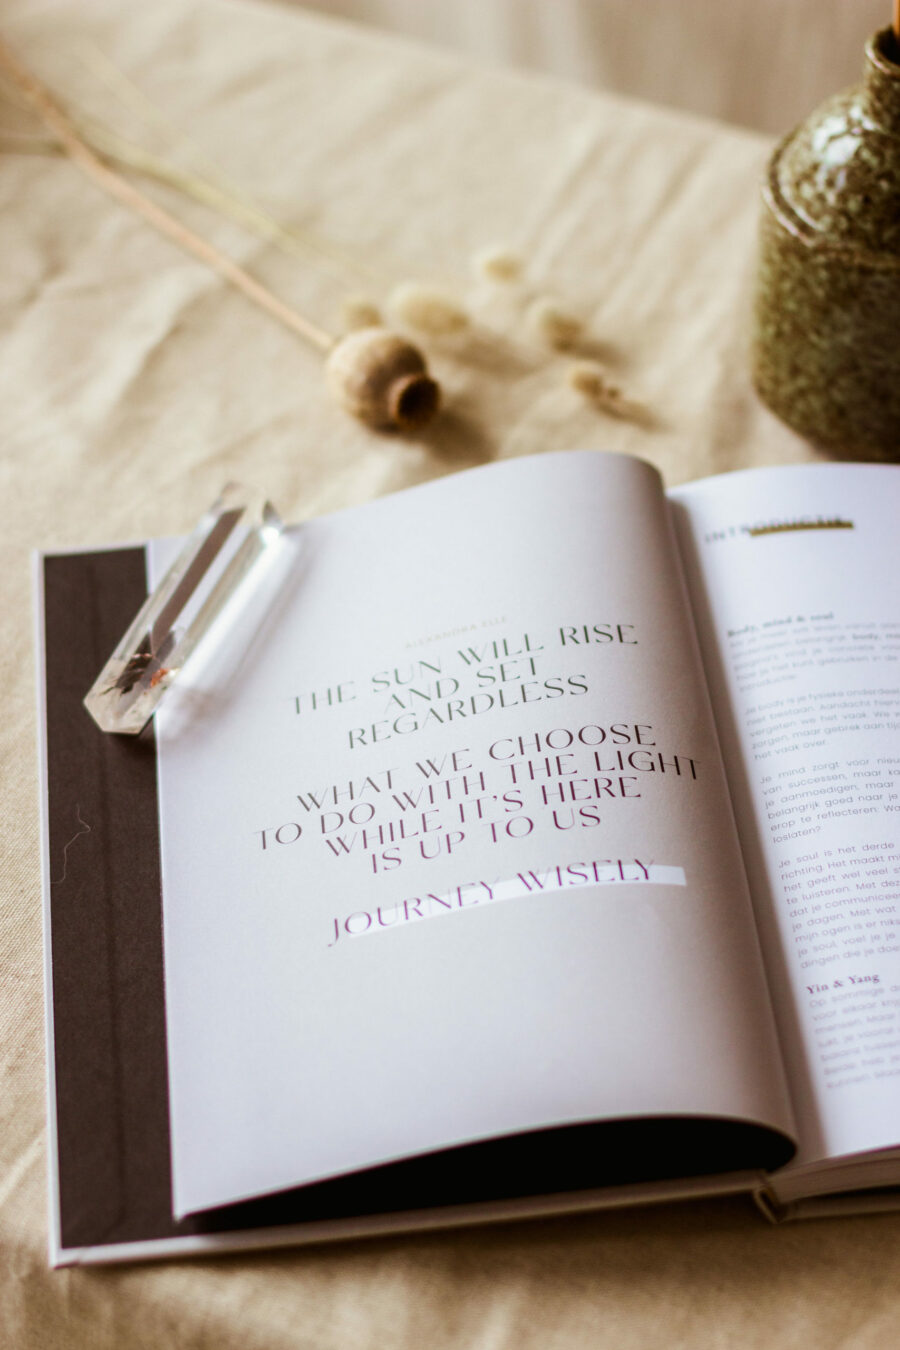 ALEXANDRA ELLE
THE SUN WILL RISE
AND SET
REGARDLESS
WHAT WE CHOOSE
TO DO WITH THE LIGHT
WHILE IT'S HERE
IS UP TO US
JOURNEY WISELY
INTRODUCTIE
Body, mind & soul
introductie.
Je body is je fysieke onderdeel
niet bestaan. Aandacht hier
vergeten we het vaak. We
zorgen, maar gebrek aan tij
het vaak over.
Je mind zorgt voor nieu
van successen, maar ka
je aanmoedigen, maar
belangrijk goed naar je
erop te reflecteren: Wa
loslaten?
Je soul is het derde
richting. Het maakt mi
het geeft wel veel s
te luisteren. Met dez
dat je communicee
je dagen. Met wat
mijn ogen is er niks
je soul, voel je je
dingen die je doe
Yin & Yang
Op sommige da
voor elkaar krij
mensen. Maar